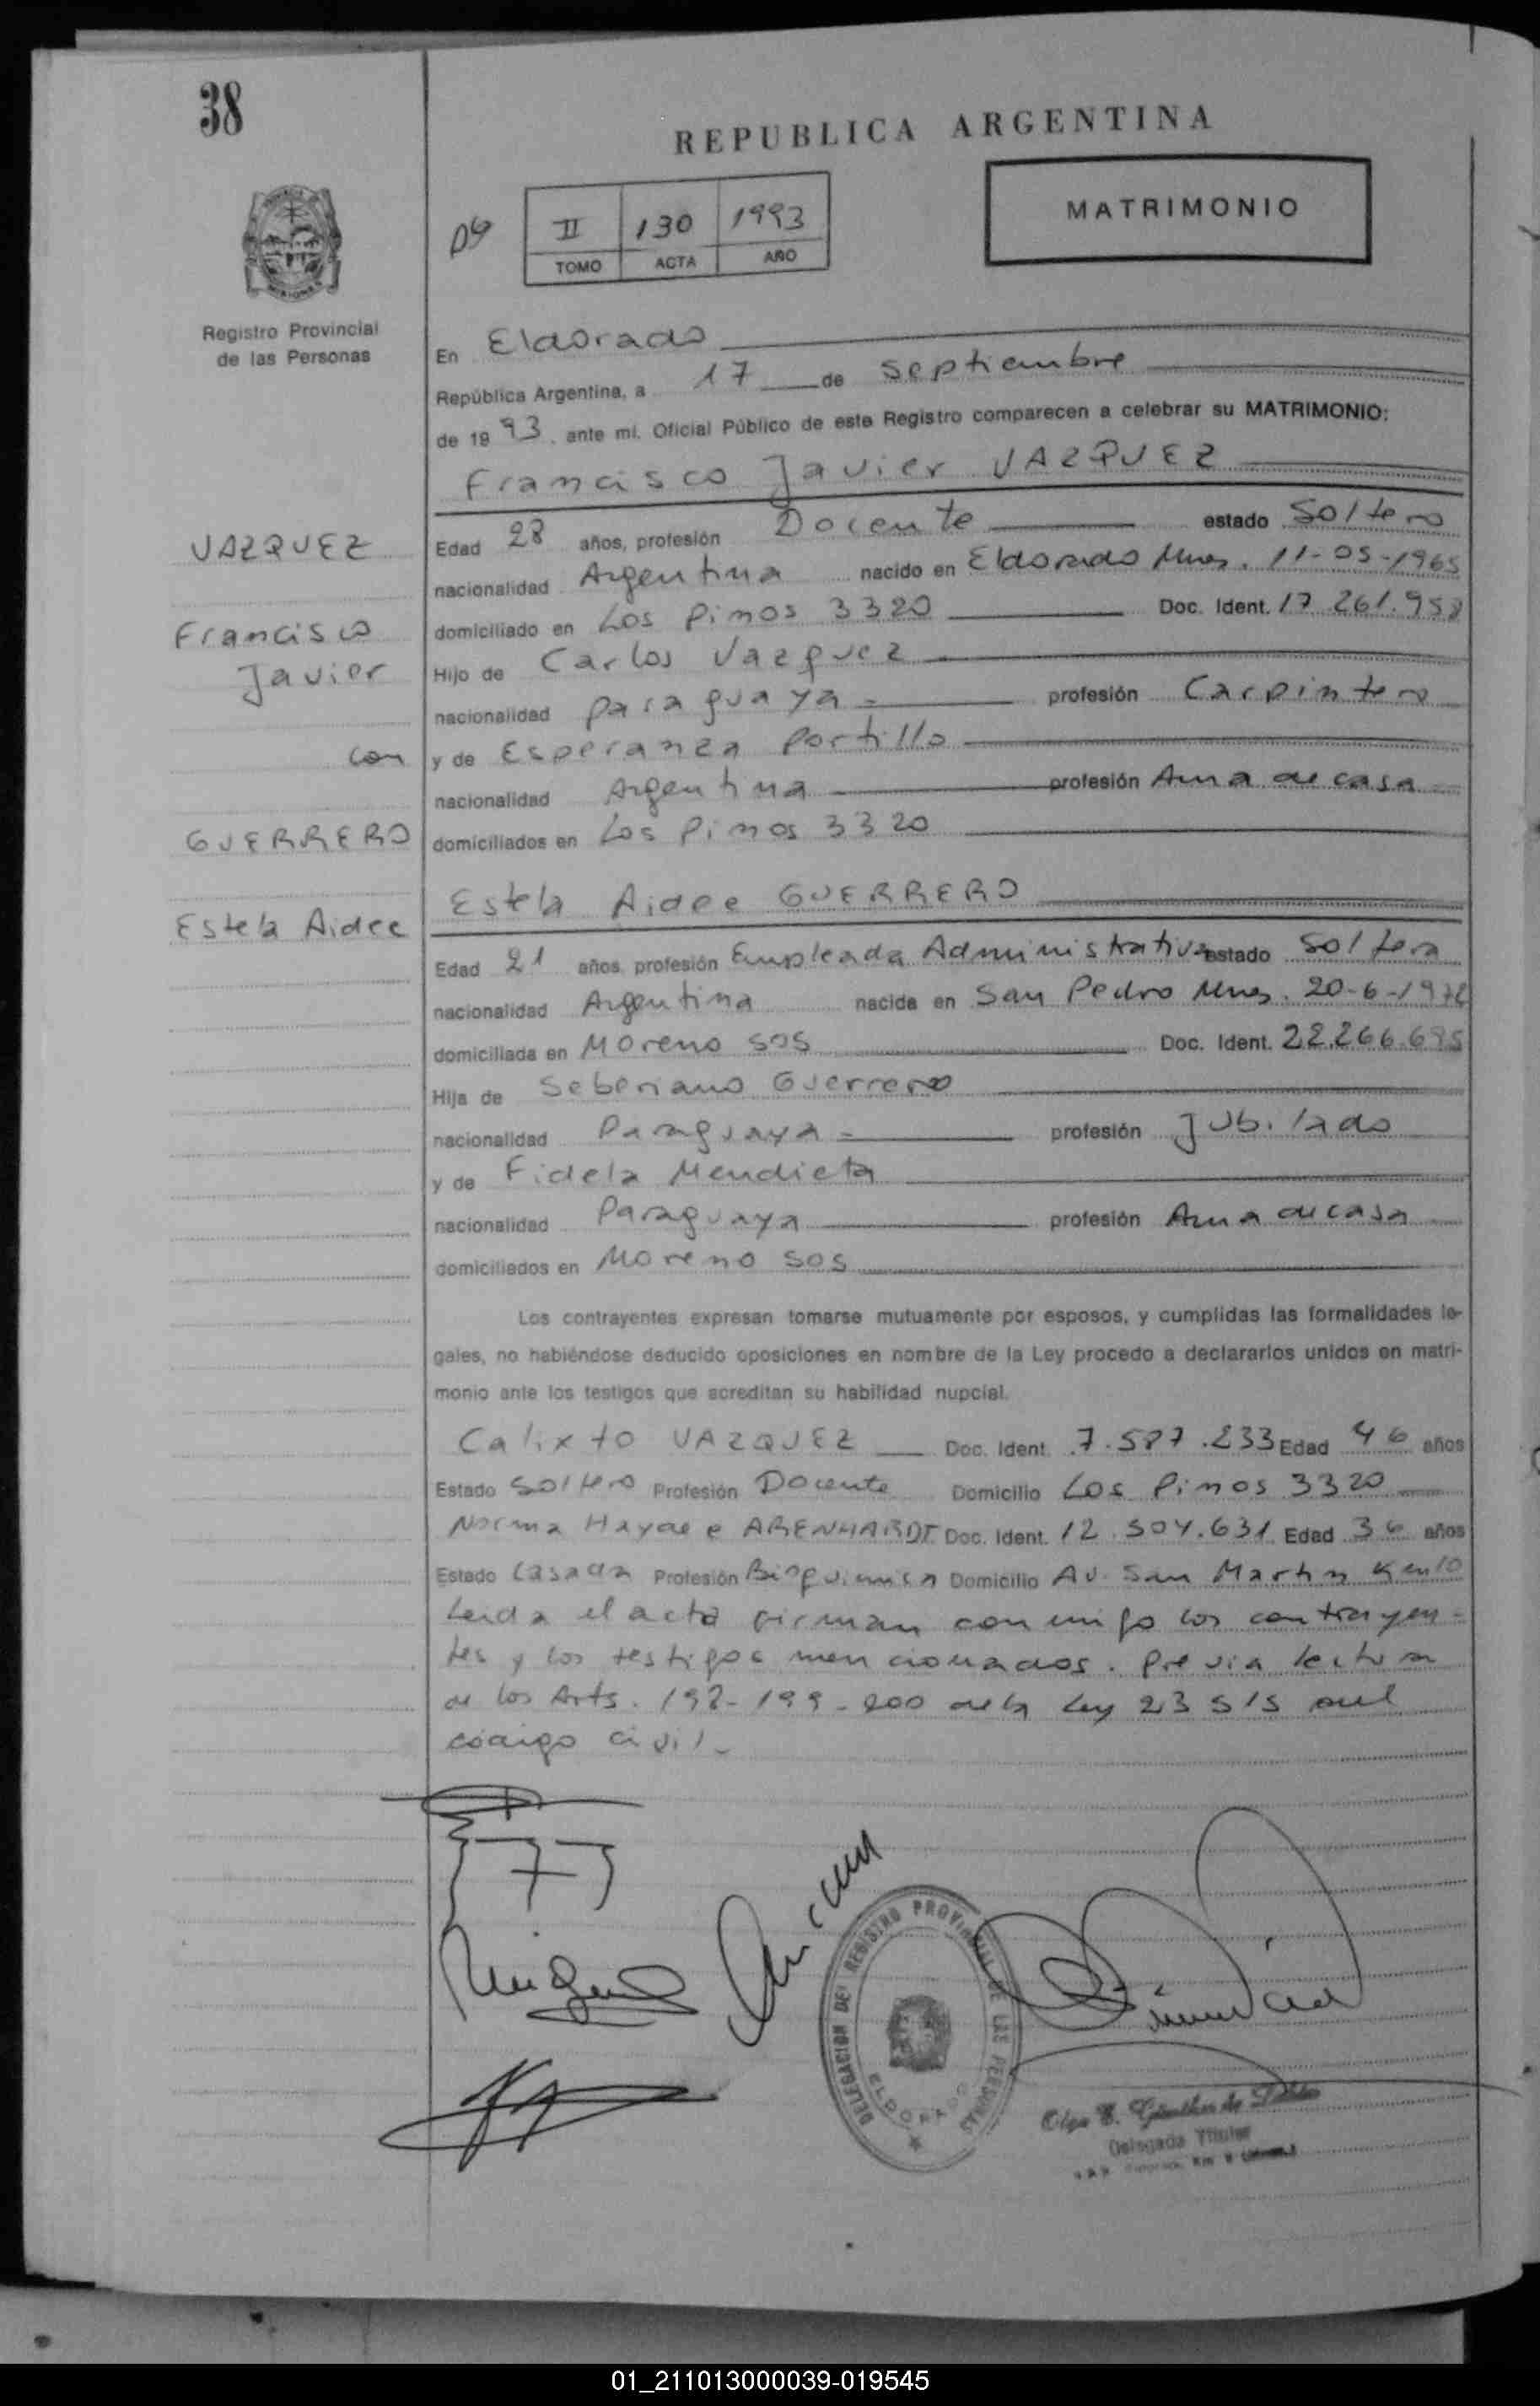 38
REPUBLICA ARGENTINA
MATRIMONIO
II 130 1993
TOMO ACTA AÑO
Registro Provincial
de las Personas
En Eldorado
República Argentina, a 17 de septiembre
de 1993, ante mi, Oficial Público de este Registro comparecen a celebrar su MATRIMONIO:
Francisco Javier VAZQUEZ
VAZQUEZ
Francisco
Javier
con
GUERRERO
Estela Aidee
Edad 28 años, profesión Docente estado Soltero
nacionalidad Argentina nacido en Eldorado Mnes. 11-05-1965
domiciliado en Los Pinos 3320 Doc. Ident. 17.261.958
Hijo de Carlos Vazquez
nacionalidad paraguaya profesión Carpintero
y de Esperanza Portillo
nacionalidad Argentina profesión Ama de casa
domiciliados en Los Pinos 3320
Estela Aidee GUERRERO
Edad 21 años, profesión Empleada Administrativa estado Soltera
nacionalidad Argentina nacida en San Pedro Mnes. 20-6-1972
domiciliada en Moreno 505 Doc. Ident. 22.266.695
Hija de Seberiano Guerrero
nacionalidad Paraguaya profesión Jubilado
y de Fidela Mendieta
nacionalidad Paraguaya profesión Ama de casa
domiciliados en Moreno 505
Los contrayentes expresan tomarse mutuamente por esposos, y cumplidas las formalidades le-
gales, no habiéndose deducido oposiciones en nombre de la Ley procedo a declararlos unidos en matri-
monio ante los testigos que acreditan su habilidad nupcial.
Calixto VAZQUEZ Doc. Ident. 7.587.233 Edad 46 años
Estado Soltero Profesión Docente Domicilio Los Pinos 3320
Norma Haydee ARENHARDT Doc. Ident. 12.504.631 Edad 36 años
Estado Casada Profesión Bioquimica Domicilio Av. San Martin Km 10
Leida el acta firman conmigo los contrayen-
tes y los testigos mencionados. Previa lectura
de los Arts. 198-199-200 de la Ley 23515 del
código civil.
DELEGACION DEL REGISTRO PROVINCIAL DE LAS PERSONAS
ELDORADO
Delegada Titular
01_211013000039-019545